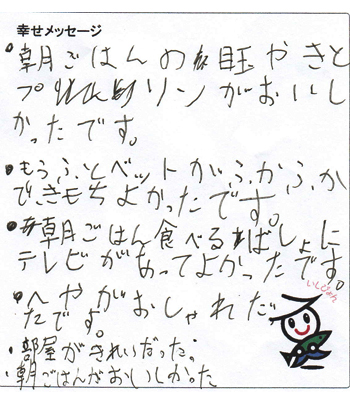 幸せメッセージ
・朝ごはんの目玉やきと
プリンがおいし
かったです。
・もうふとベットがふかふか
で、きもちよかったです。
・朝ごはん食べるばしょに
テレビがあってよかったです。
いしじゃん
・へやがおしゃれだっ
たです。
・部屋がきれいだった。
・朝ごはんがおいしかった